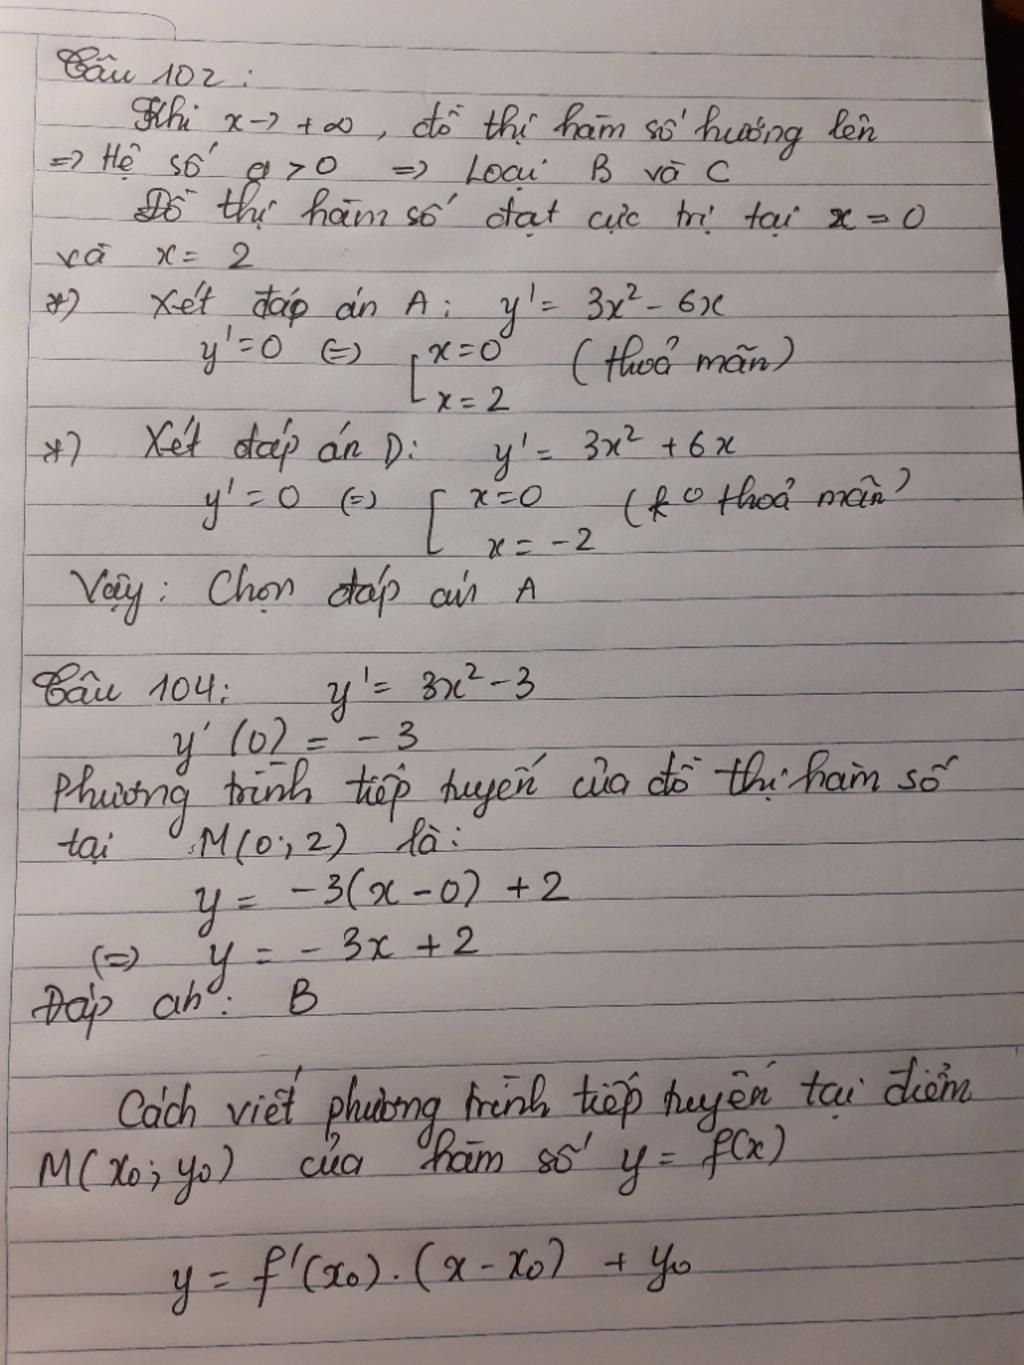 Câu 102:
Khi x → +∞, đồ thị hàm số hướng lên
=> Hệ số a > 0 => Loại B và C
Đồ thị hàm số đạt cực trị tại x = 0
và x = 2
*) Xét đáp án A: y' = 3x² - 6x
y' = 0 (=) [ x = 0 (thoả mãn)
x = 2
*) Xét đáp án D: y' = 3x² + 6x
y' = 0 (=) [ x = 0 (k° thoả mãn)
x = -2
Vậy: Chọn đáp án A
Câu 104: y' = 3x² - 3
y'(0) = -3
Phương trình tiếp tuyến của đồ thị hàm số
tại M(0;2) là:
y = -3(x - 0) + 2
(=) y = -3x + 2
Đáp án: B
Cách viết phương trình tiếp tuyến tại điểm
M(x₀; y₀) của hàm số y = f(x)
y = f'(x₀).(x - x₀) + y₀